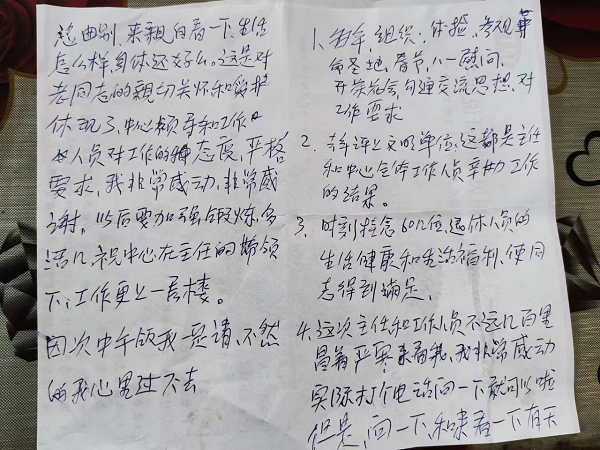 1、每年,组织,体检,参观革
命圣地、春节,八一慰问,
开茶花会,沟通交流思想,对
工作要求
2、年评上文明单位,这都是主任
和中心全体工作人员辛勤工作
的结果。
3、时刻挂念60几位退休人员的
生活健康和生活福利、使同
志得到满足、
4、这次主任和工作人员不远几百里
冒着严寒来看我,我非常感动
实际打个电话问一下就可以啦
但是,问一下,和来看一下有天
曲别,来亲自看一下,生活
怎么样,身体还好么。这是对
老同志的亲切关怀和爱护
体现了,中心领导和工作
人员对工作的态度,严格
要求,我非常感动,非常感
谢。以后要加强锻炼,多
活几,祝中心在主任的带领
下,工作更上一层楼。
因次中午饭我一定请,不然
的我心里过不去